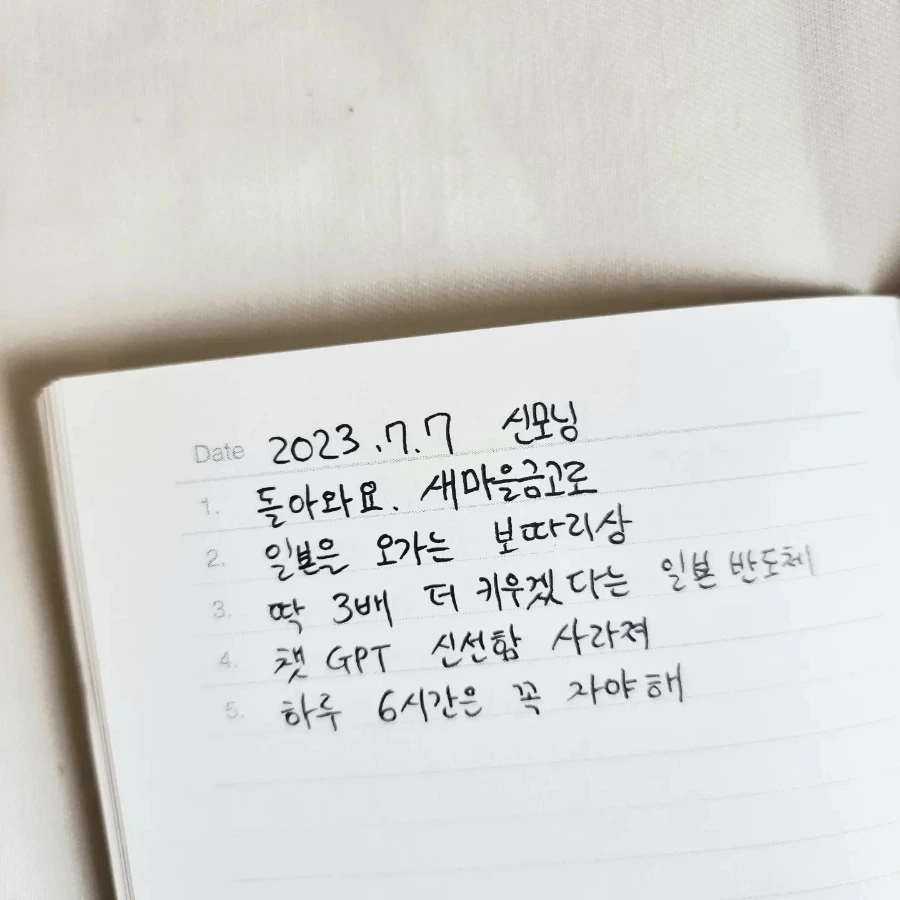 Date 2023.7.7 신모닝
1. 돌아와요. 새마을금고로
2. 일본을 오가는 보따리상
3. 딱 3배 더 키우겠다는 일본 반도체
4. 챗 GPT 신선함 사라져
5. 하루 6시간은 꼭 자야해